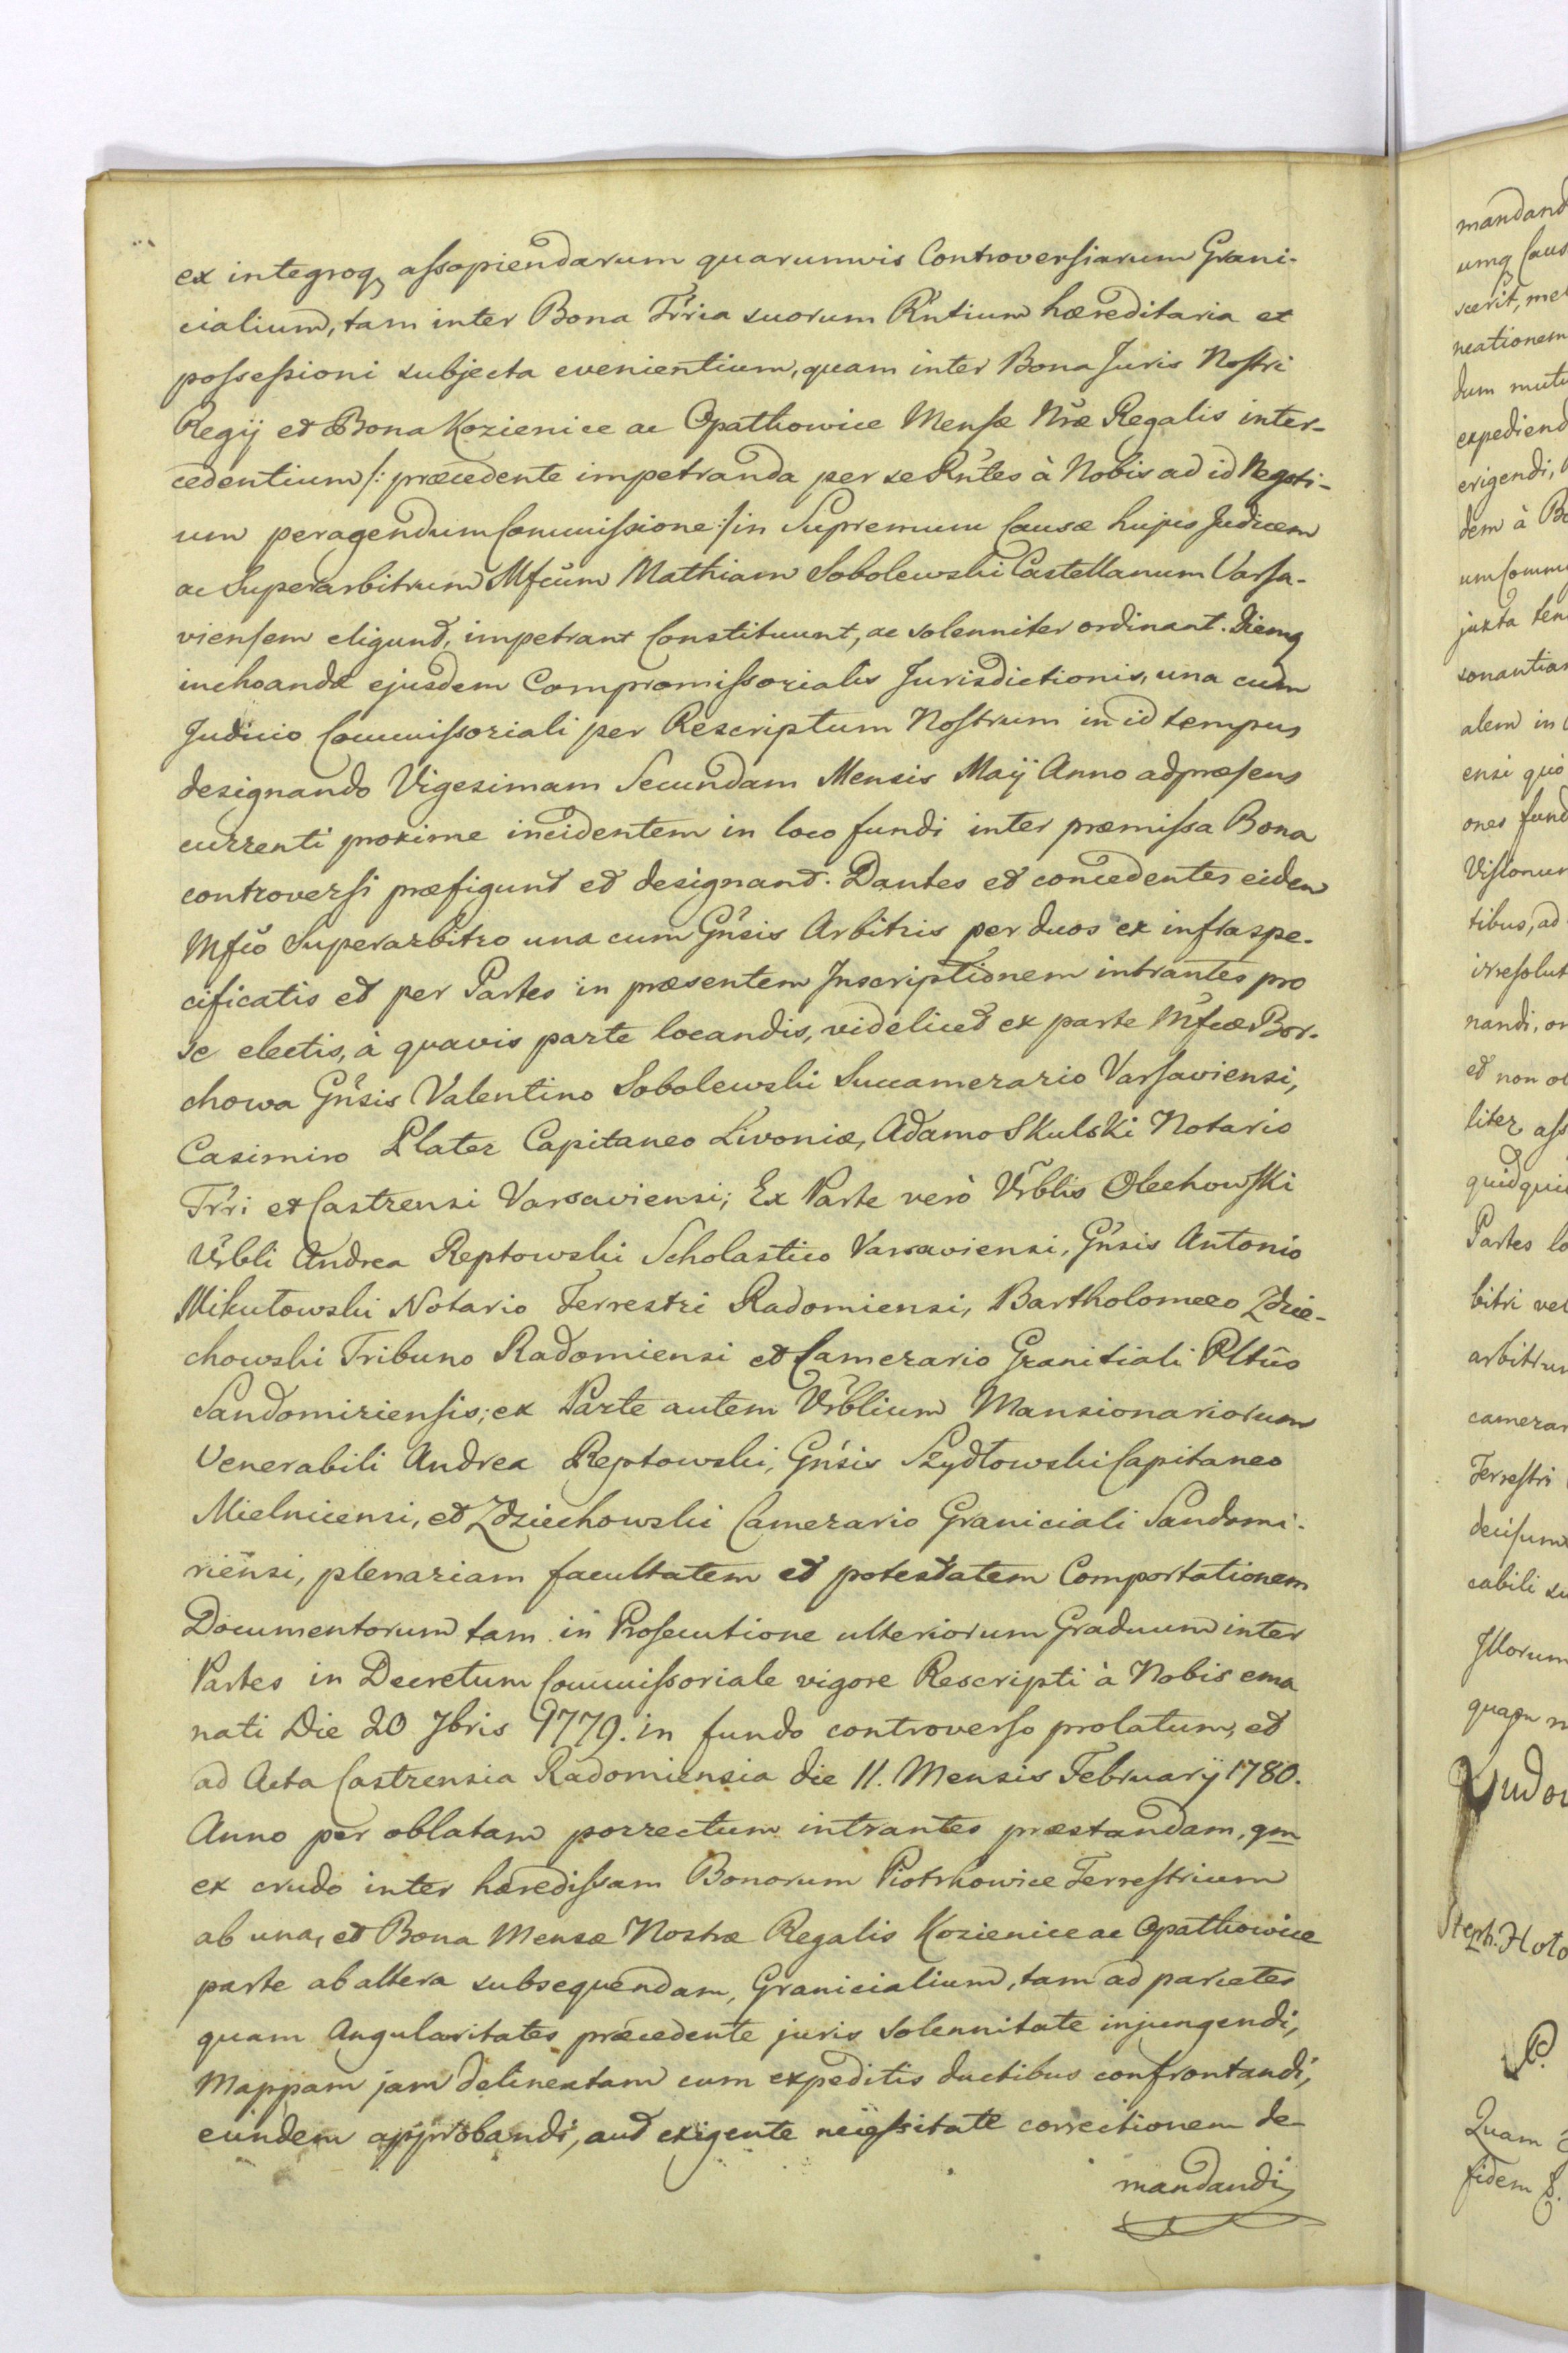 ex integroq assopiendarum quarumvis Controversiarum Grani-
cialium, tam inter Bona Trria suorum Rntium hæreditaria et
possessioni subjecta evenientium, quam inter Bona Juris Nostri
Regij et Bona Kozienice ac Opatkowice Mensæ Nræ Regalis inter-
cedentium /: præcedente impetranda per se Rntes à Nobis ad id Negoti-
um peragendum Commissione :/ in Supremum Causæ hujus Judicem
ac Superarbitrum Mfcum Mathiam Sobolewski Castellanum Varsa-
viensem eligunt, impetrant Constituunt, ac solenniter ordinant. Diemq
inchoandæ ejusdem Compromissorialis Jurisdictionis, una cum
Judicio Commissoriali per Rescriptum Nostrum in id tempus
designando Vigesimam Secundam Mensis Maij Anno adpræsens
currenti proxime incidentem in loco fundi inter præmissa Bona
controversi præfigunt et designant. Dantes et concedentes eidem
Mfco Superarbitro una cum Gnsis Arbitris per duos ex infraspe-
cificatis et per Partes in præsentem Inscriptionem intrantes pro
se electis, à quavis parte locandis, videlicet ex parte Mfcæ Bor-
chowa Gnsis Valentino Sobolewski Succamerario Varsaviensi,
Casimiro Plater Capitaneo Livoniæ, Adamo Skulski Notario
Trri et Castrensi Varsaviensi; Ex Parte verò Vrblis Olechowski
Vrbli Andrea Reptowski Scholastico Varsaviensi, Gnsis Antonio
Mikułowski Notario Terrestri Radomiensi, Bartholomeo Zdzie-
chowski Tribuno Radomiensi et Camerario Granitiali Pltûs
Sandomiriensis; ex Parte autem Vrblium Mansionariorum
Venerabili Andrea Reptowski, Gnsis Szydłowski Capitaneo
Mielnicensi, et Zdziechowski Camerario Graniciali Sandomi-
riensi, plenariam facultatem et potestatem Comportationem
Documentorum tam in Prosecutione ulteriorum Graduum inter
Partes in Decretum Commissoriale vigore Rescripti à Nobis ema
nati Die 20 7bris 1779. in fundo controverso prolatum, et
ad Acta Castrensia Radomiensia die 11. Mensis Februarij 1780.
Anno per oblatam porrectum intrantes præstandam, qm
ex crudo inter hæredissam Bonorum Piotrkowice Terrestrium
ab una, et Bona Mensæ Nostræ Regalis Kozienice ac Opatkowice
parte ab altera subsequendam, Granicialium, tam ad parietes
quam Angularitates præcedente juris solennitate injungendi,
Mappam jam delineatam cum expeditis ductibus confrontandi,
eundem approbandi, aut exigente necessitate correctionem de-
mandandi
mandand
umq Caus
scerit, me
neationem
dum mutu
expediend
erigendi,
dem à Bo
um Comm
juxta ten
sonantia
alem in
ensi quo
ones fund
tibus, ad
irresolut
nandi, or
et non
liter ass
quidqui
Partes lo
bitri vel
arbitru
camerar
Terrestri
decisum
cabili su
Illorum
quam n
Steph. Hoło
Quam
fidem